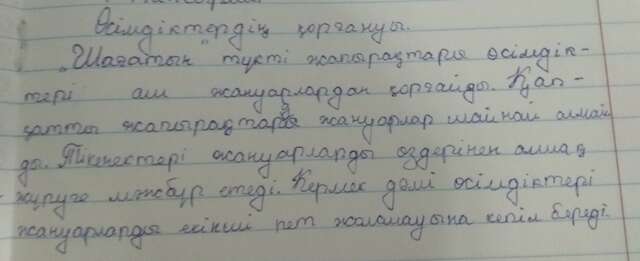 Өсімдіктердің қорғануы.
"Шағатын" түкті жапырақтары өсімдік-
тері аш жануарлардан қорғайды. Қап-
қатты жапырақтарды жануарлар шайнай алмай
ды. Тікенектері жануарларды өздерінен аулақ
жүруге мәжбүр етеді. Кермек дәмі өсімдіктері
жануарларды екінші рет жоламауына кепіл береді.